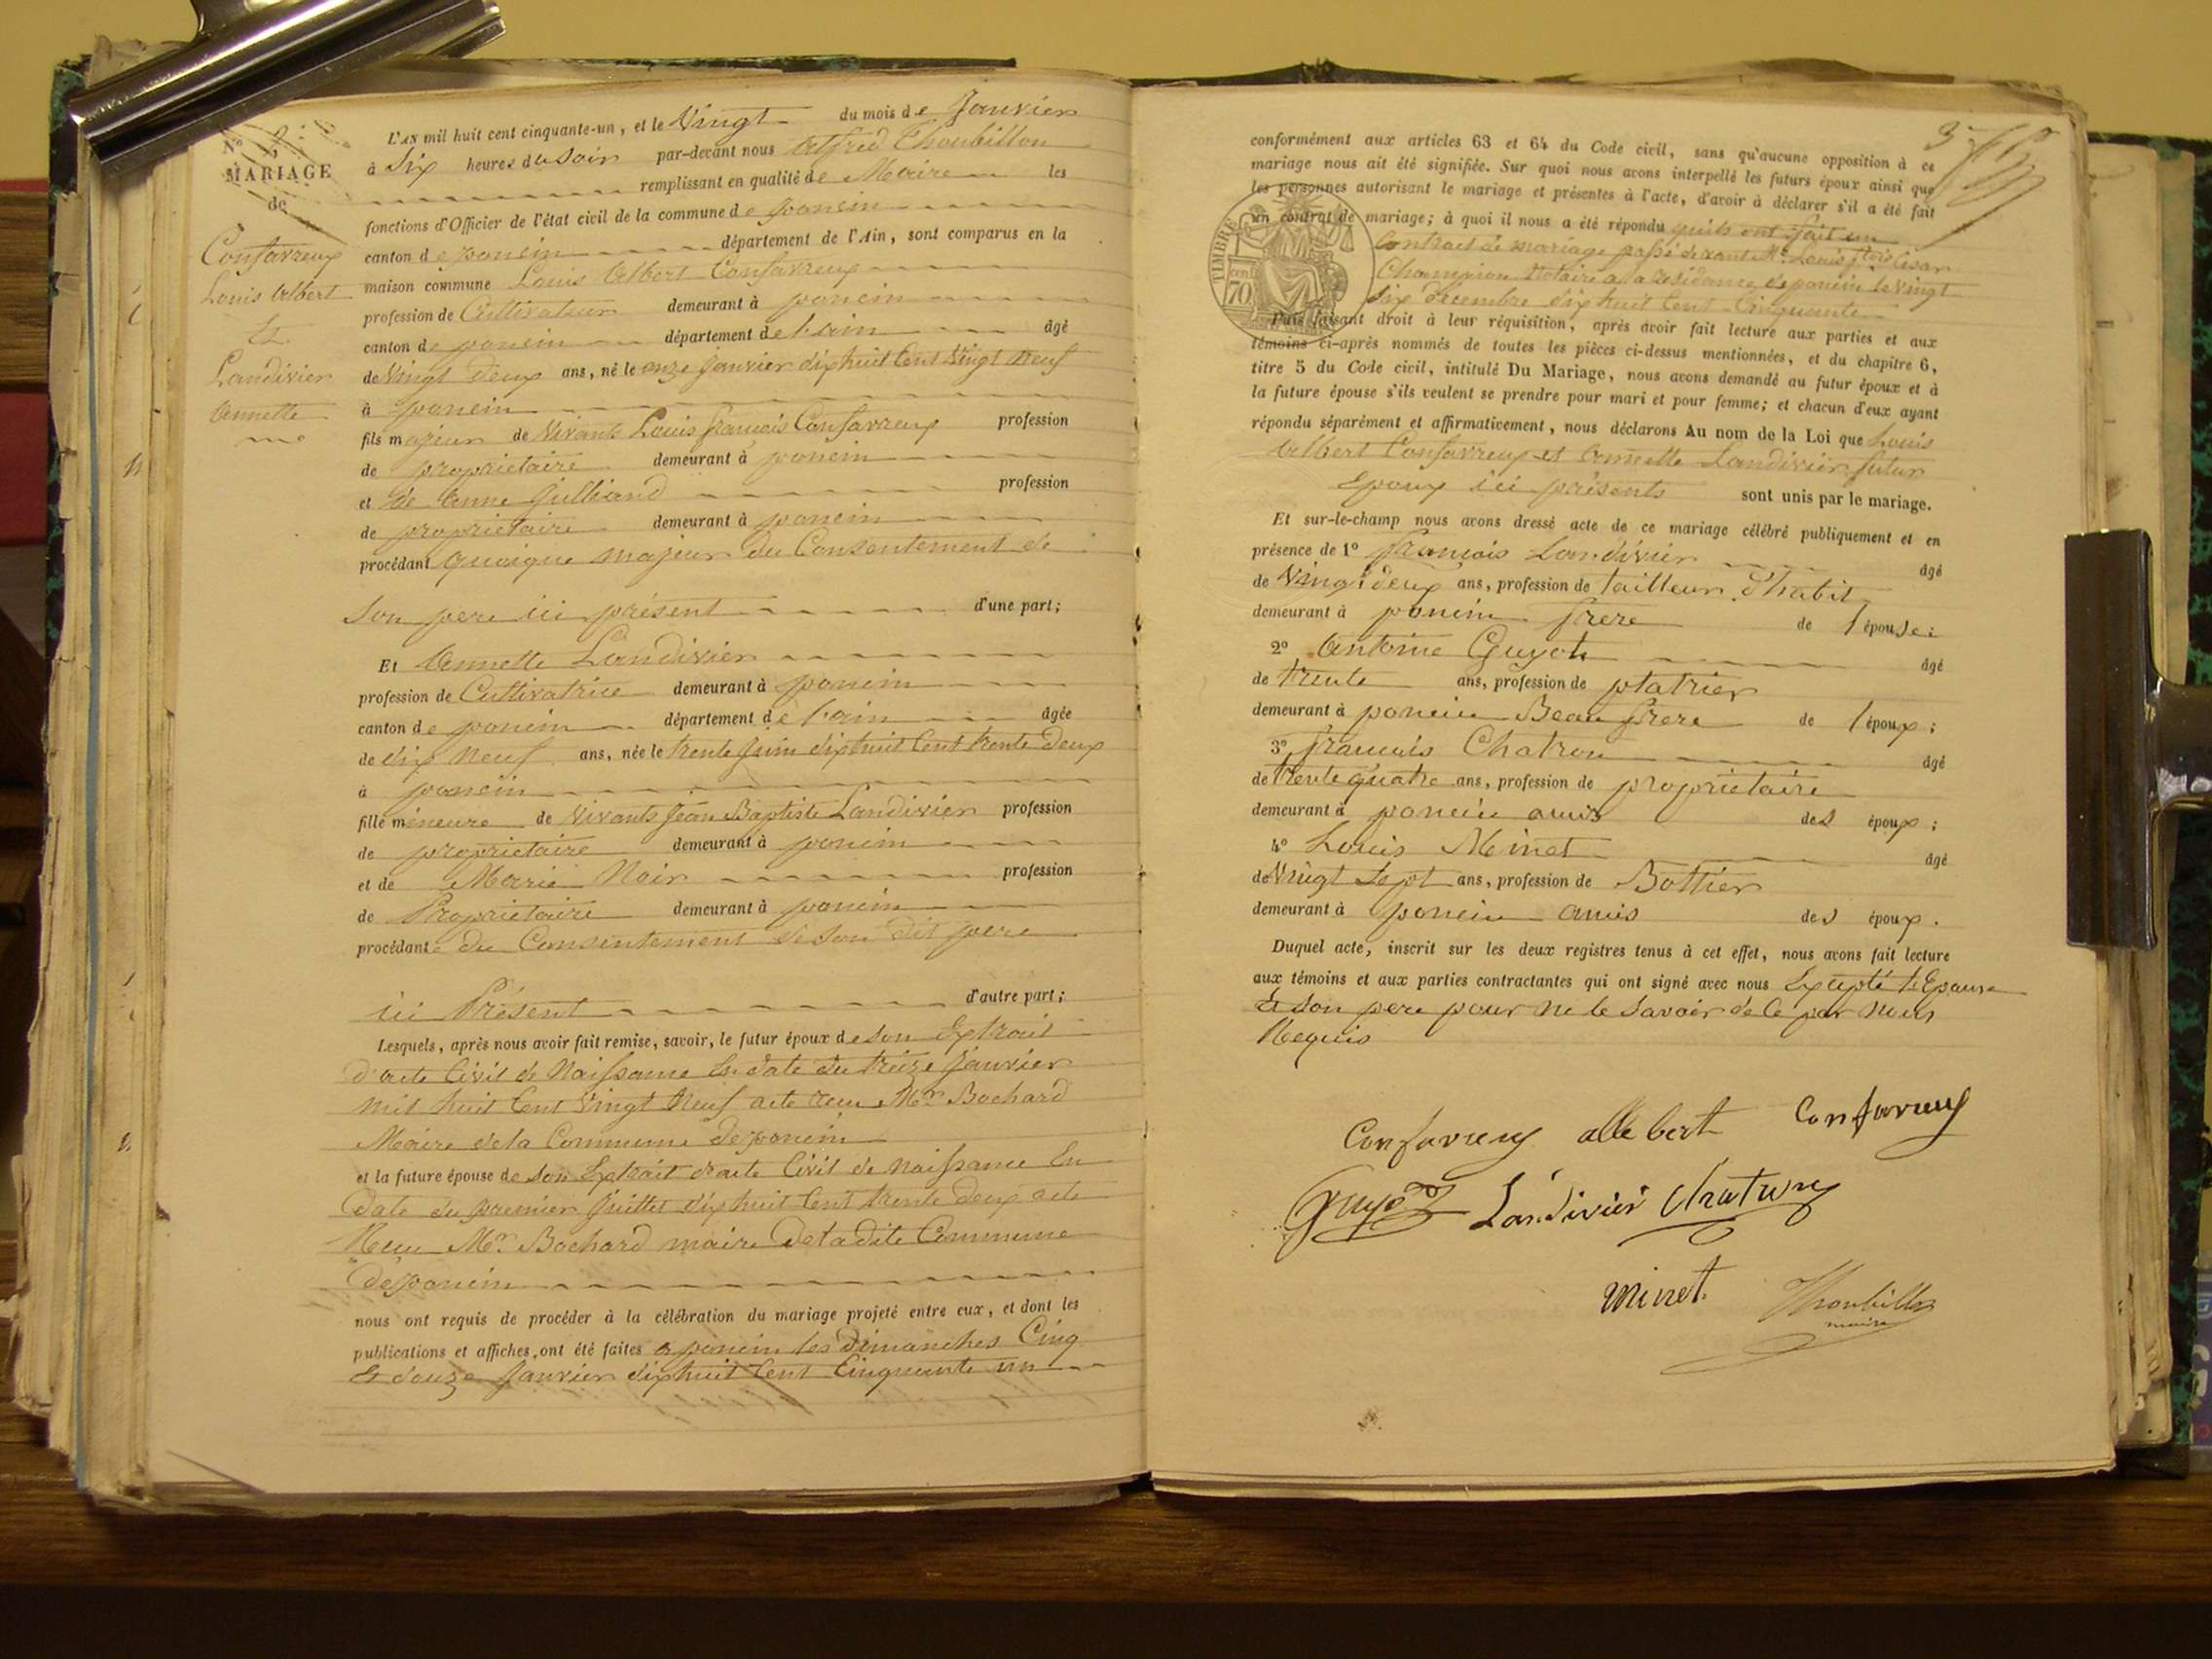 N°
MARIAGE
de
Confavreux
Louis Albert
Et
Landivier
Annette
L'AN mil huit cent cinquante-un, et le Vingt du mois de Janvier
à Six heures du Soir par-devant nous Alfred Thoubillon
remplissant en qualité de Maire les
fonctions d'Officier de l'état civil de la commune de poncin
canton de poncin département de l'Ain, sont comparus en la
maison commune Louis Albert Confavreux
profession de Cultivateur demeurant à poncin
canton de poncin département de l'ain âgé
de Vingt deux ans, né le onze Janvier dix huit Cent Vingt Neuf
à poncin
fils majeur de Vivants Louis françois Confavreux profession
de propriétaire demeurant à poncin
et de Anne Julliand profession
de propriétaire demeurant à poncin
procédant quoique majeur du Consentement de
Son pere ici présent d'une part;
Et Annette Landivier
profession de Cultivatrice demeurant à poncin
canton de poncin département de l'ain âgée
de dix Neuf ans, née le trente Juin dix huit Cent trente Deux
à poncin
fille mineure de Vivants Jean Baptiste Landivier profession
de propriétaire demeurant à poncin
et de Marie Noir profession
de Propriétaire demeurant à poncin
procédante du Consintement de Son dit pere
ici Présent d'autre part;
Lesquels, après nous avoir fait remise, savoir, le futur époux de son Extrait
d'acte Civil de Naissance En date du treize Janvier
mil huit Cent Vingt Neuf acte recu Mr. Bochard
Maire de la Commune de poncin
et la future épouse de son Extrait d'acte Civil de naissance En
Date du premier Juillet dix huit Cent trente Deux acte
Recu Mr. Bochard maire De la dite Commune
De poncin
nous ont requis de procéder à la célébration du mariage projeté entre eux, et dont les
publications et affiches, ont été faites a poncin les Dimanches Cinq
Et douze Janvier dix huit Cent Cinquante un
3
conformément aux articles 63 et 64 du Code civil, sans qu'aucune opposition à ce
mariage nous ait été signifiée. Sur quoi nous avons interpellé les futurs époux ainsi que
les personnes autorisant le mariage et présentes à l'acte, d'avoir à déclarer s'il a été fait
un contrat de mariage; à quoi il nous a été répondu quils ont fait un
TIMBRE
cent. 70
Contrat de mariage passé devant Me. Louis César
Champion Notaire a la résidance de poncin le Vingt
Six décembre dix huit Cent Cinquante
Puis faisant droit à leur réquisition, après avoir fait lecture aux parties et aux
témoins ci-après nommés de toutes les pièces ci-dessus mentionnées, et du chapitre 6,
titre 5 du Code civil, intitulé Du Mariage, nous avons demandé au futur époux et à
la future épouse s'ils veulent se prendre pour mari et pour femme; et chacun d'eux ayant
répondu séparément et affirmativement, nous déclarons Au nom de la Loi que Louis
Albert Confavreux et Annette Landivier futur
Epoux ici présents sont unis par le mariage.
Et sur-le-champ nous avons dressé acte de ce mariage célébré publiquement et en
présence de 1° françois Landivier âgé
de Vingt deux ans, profession de tailleur D'habit
demeurant à poncin frere de l'épouse;
2° Antoine Guyot âgé
de trente ans, profession de platrier
demeurant à poncin Beau frere de l'époux;
3° françois Chatron âgé
de trente quatre ans, profession de propriétaire
demeurant à poncin amis des époux;
4° Louis Minet âgé
de Vingt Sept ans, profession de Bottier
demeurant à poncin amis des époux.
Duquel acte, inscrit sur les deux registres tenus à cet effet, nous avons fait lecture
aux témoins et aux parties contractantes qui ont signé avec nous Excepté l'Epouse
Et son pere pour ne le Savoir de ce par nous
Requis
Confavreux allebert Confavreux
Guyot Landivier Chatron
Minet. Thoubillon
maire